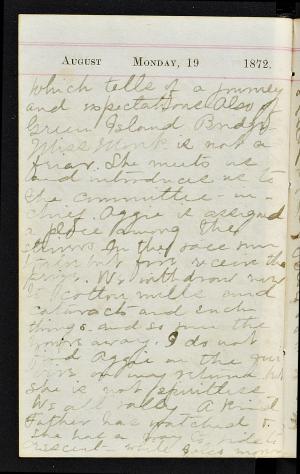 August Monday, 19 1872.
which tells of a journey
and expectations. Also of
Green Island Bridge.
Miss Monk is not a
friar. She meets us
and introduces us to
the committee-in-
chief. Aggie is assigned
a place among the
In the race
but receive the
We withdraw
to cotton mills and
cataracts and such
things. and so pass the
hours away. I do not
find Aggie on the
on my return but
she is not spiritless
We all rally. A kind
Father has watched
She has a way to ride to
Crescent- while